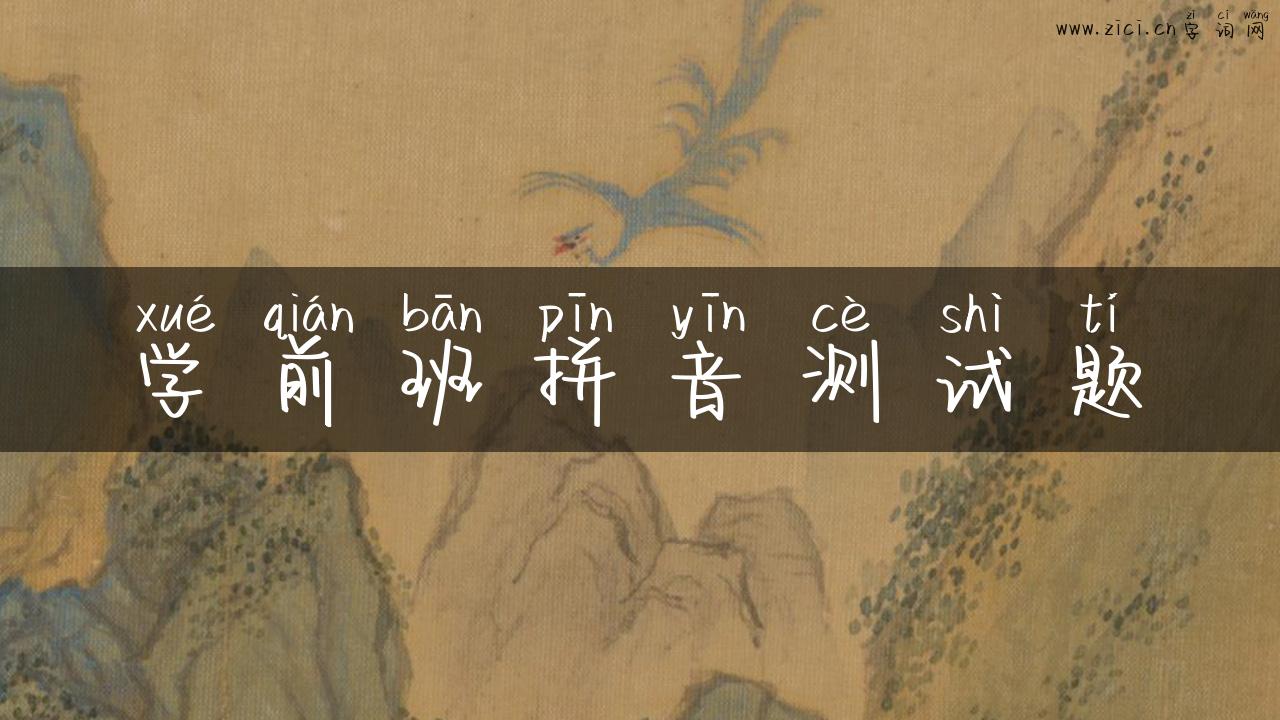 zì cí wǎng
www.zici.cn字词网
xué qián bān pīn yīn cè shì tí
学前班拼音测试题